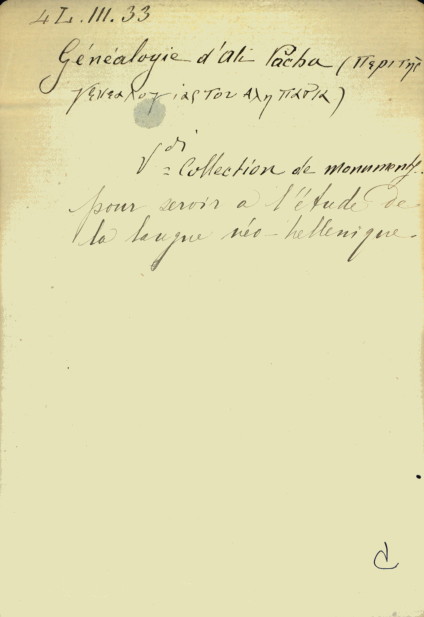 4 L. III. 33
Généalogie d'Ali Pacha (περι της
γενεαλογιας του αλη πασα)
Vdi
= Collection de monuments
pour servir a l'étude de
la langue néo-hellenique.